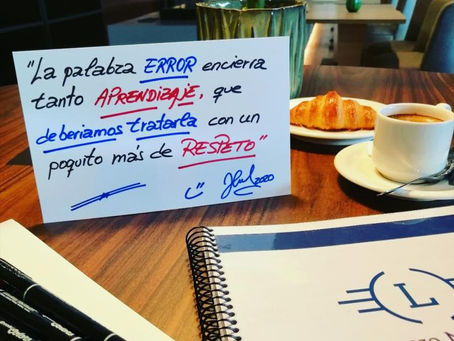 "La palabra ERROR encierra
tanto APRENDIZAJE, que
deberiamos tratarla con un
poquito más de RESPETO"
2020
L